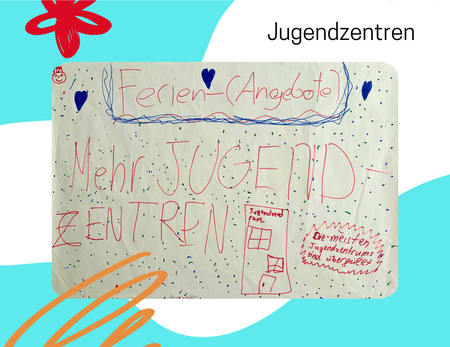 Jugendzentren
Ferien-(Angebote)
Mehr JUGEND-
ZENTREN
Jugendzent
rum
Die meisten
Jugendzentrums
sind überfüllt